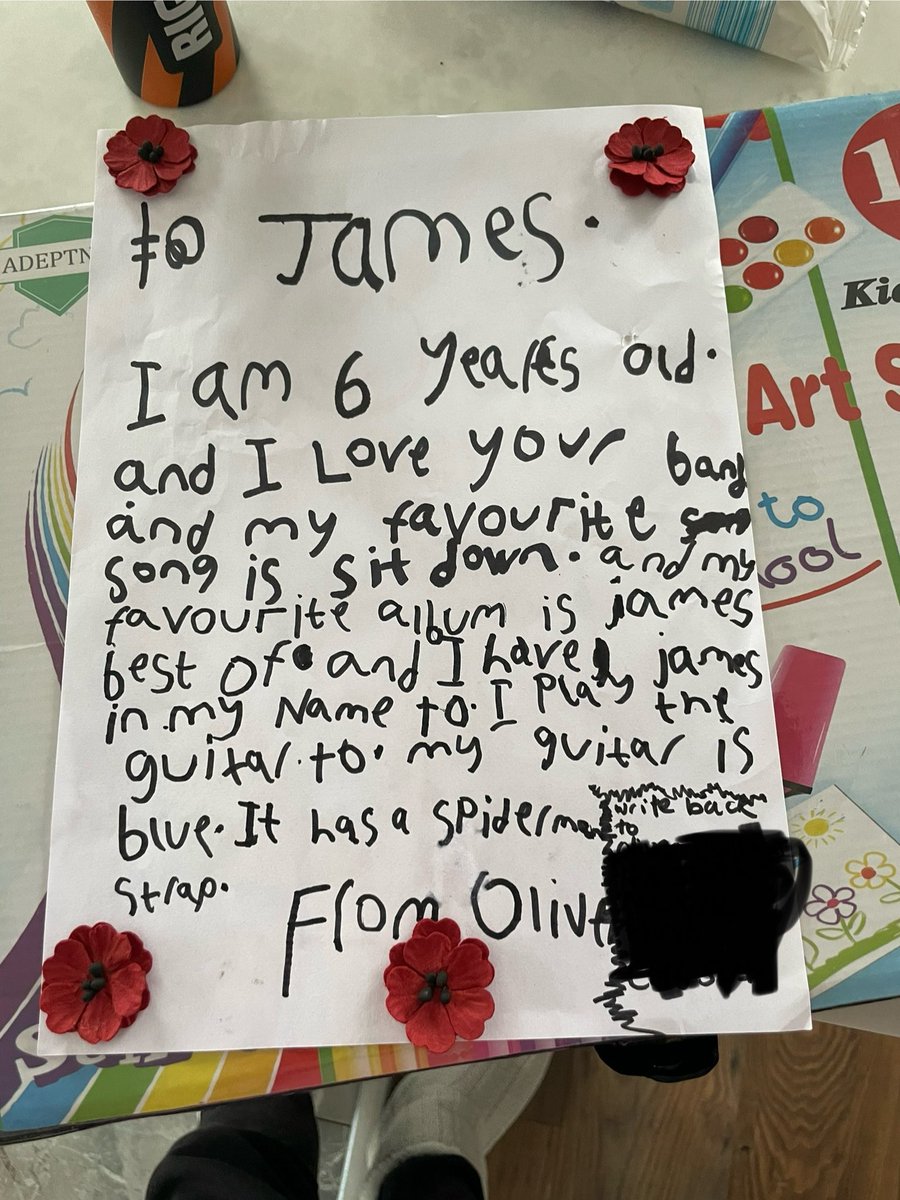 RIG
ADEPTN
1
Kid
Art S
to
ool
to James.
I am 6 years old.
and I Love your band
and my favourite
song is sit down. and my
favourite album is james
best of and I have james
in my Name to. I Play the
guitar. to. my guitar IS
blue. It has a spiderman
strap.
From Olive
write back
to